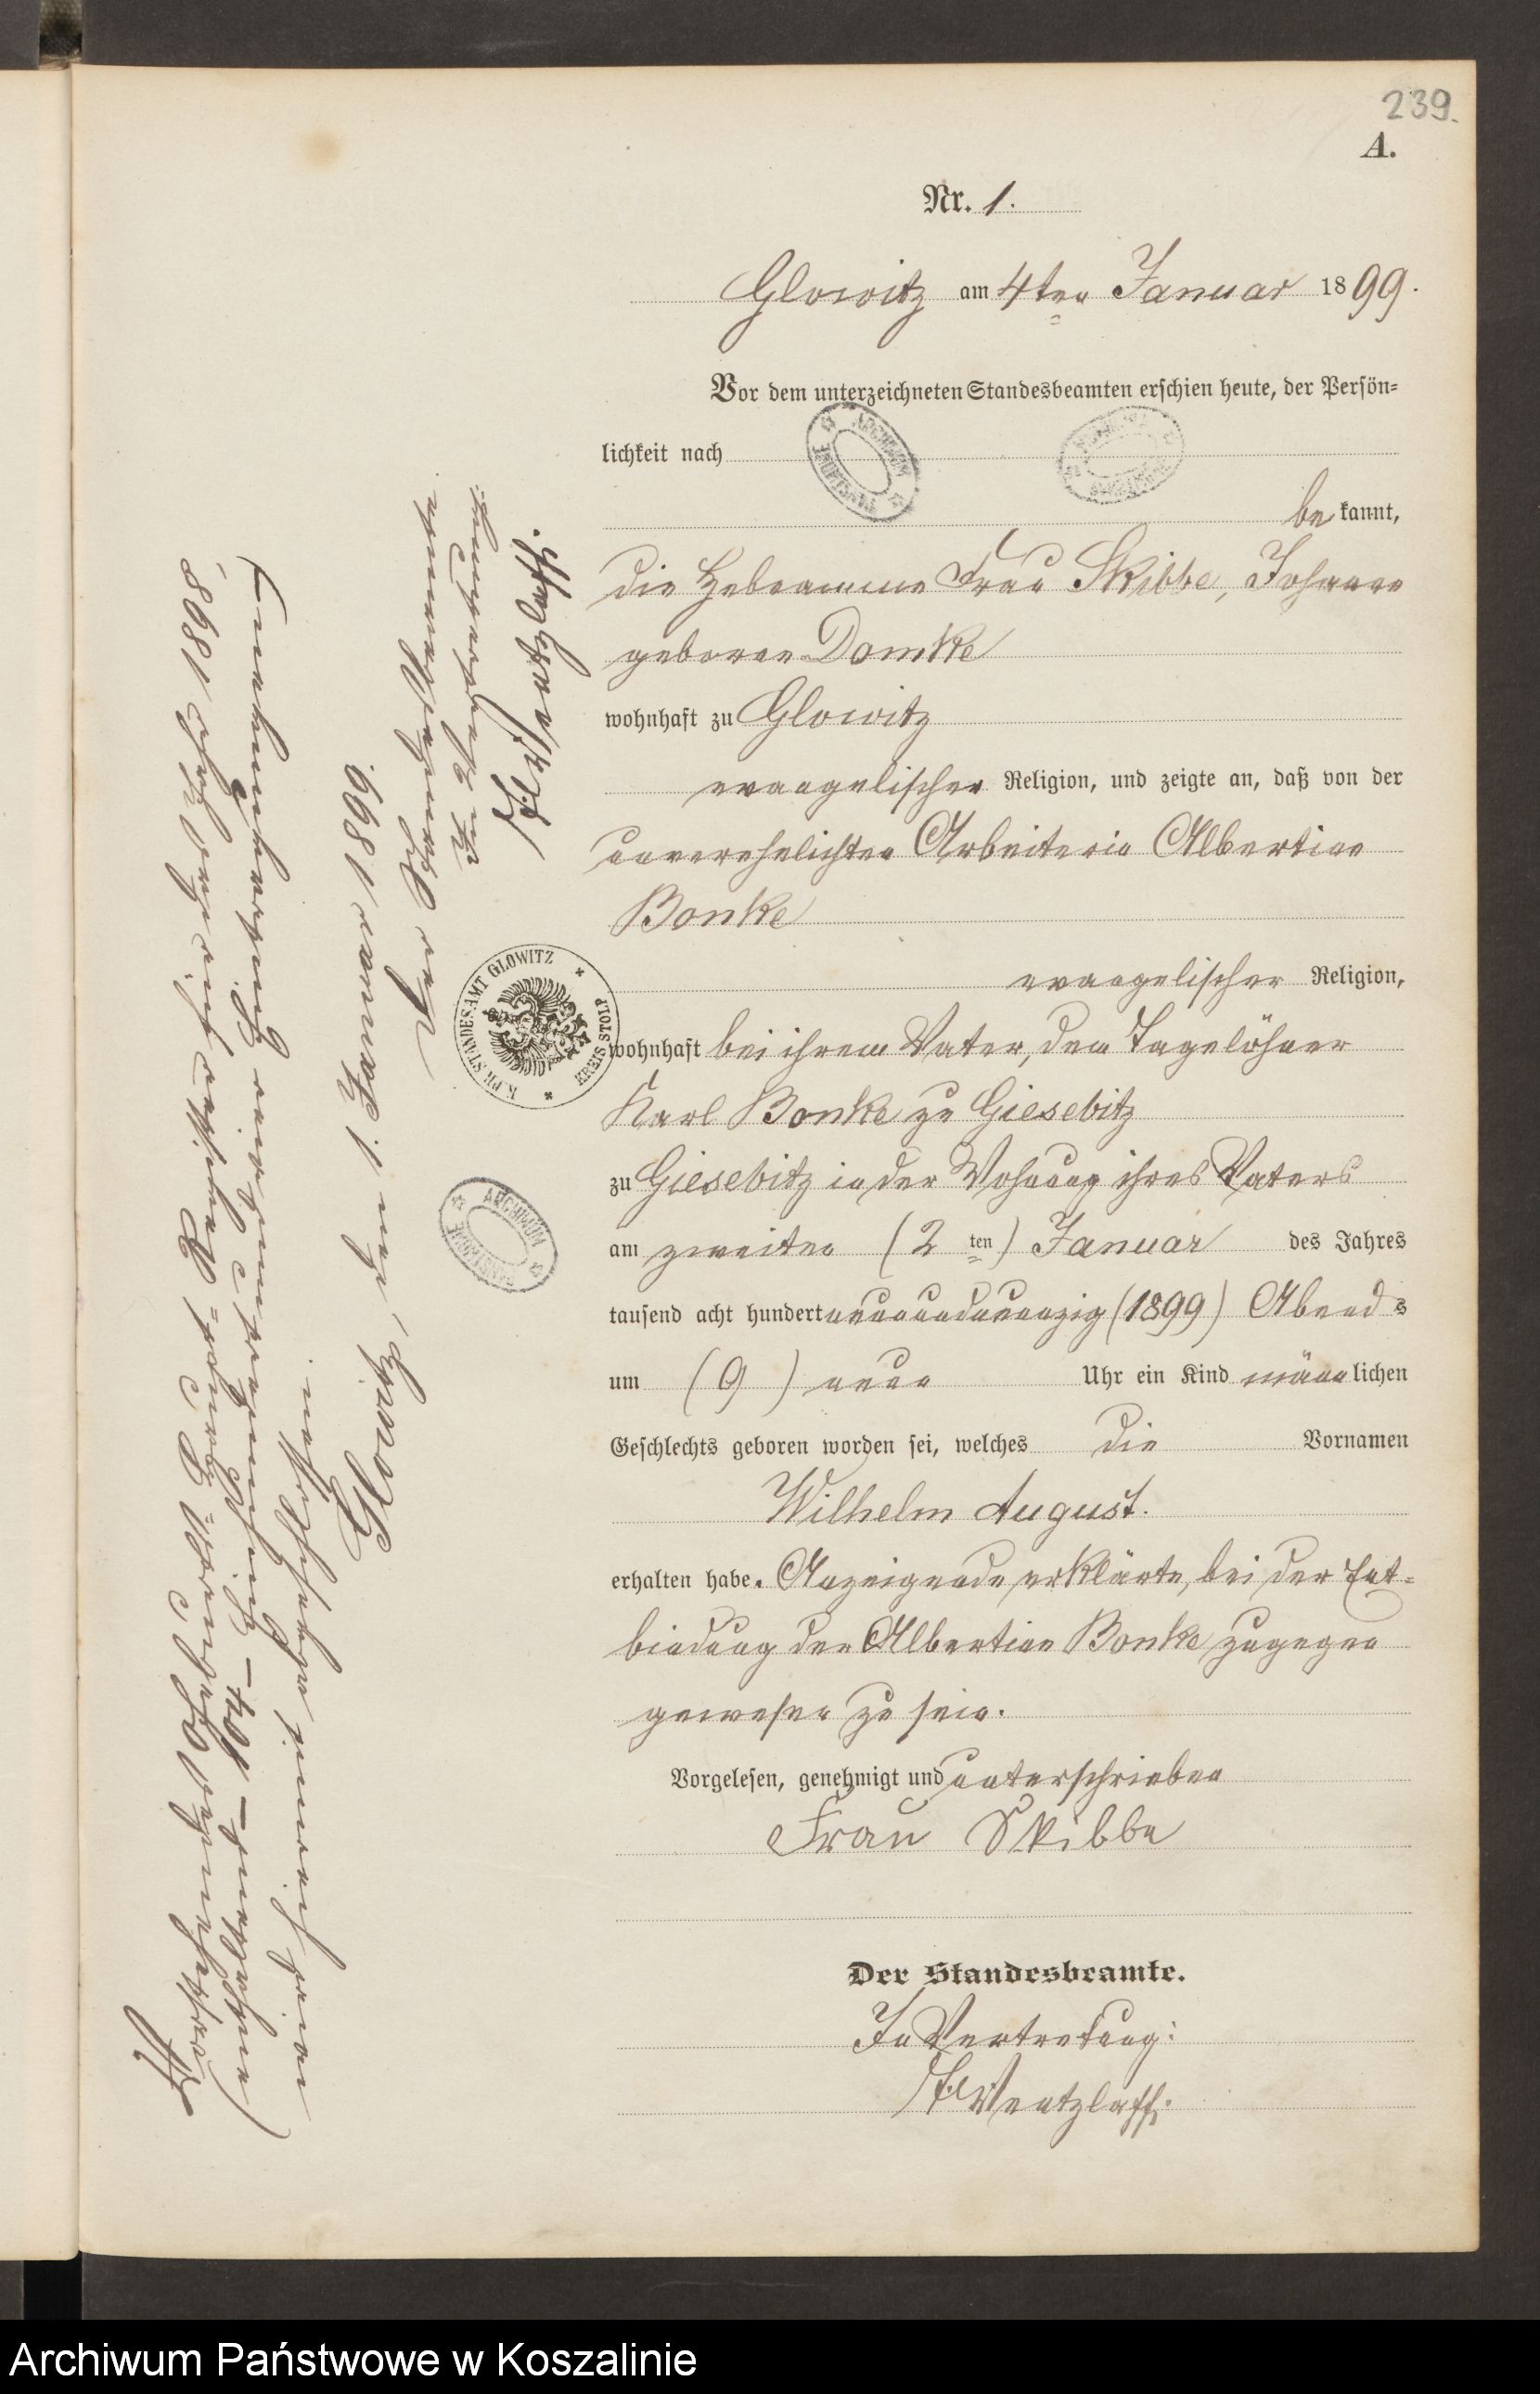 239.
A.
Nr. 1.
Glowitz am 4ten Januar 1899.
Vor dem unterzeichneten Standesbeamten erschien heute, der Persön=
lichkeit nach
bekannt,
die Hebeamme Frau Skibbe, Johanne
geborene Domke
wohnhaft zu Glowitz
evangelischer Religion, und zeigte an, daß von der
unverehelichten Arbeiterin Albertine
Bonke
evangelischer Religion,
wohnhaft bei ihrem Vater, dem Tagelöhner
Karl Bonke zu Giesebitz
zu Giesebitz in der Wohnung ihres Vaters
am zweiten (2ten) Januar des Jahres
tausend acht hundert neunundneunzig (1899) Abends
um (9) neun Uhr ein Kind männlichen
Geschlechts geboren worden sei, welches die Vornamen
Wilhelm August.
erhalten habe. Anzeigende erklärte, bei der Ent=
bindung der Albertine Bonke zugegen
gewesen zu sein.
Vorgelesen, genehmigt und unterschrieben
Frau Skibbe
Der Standesbeamte.
In Vertretung:
Wentzlaff.
1898,
Glowitz, den 1. Januar 1899.
Der Standesbeamte
In Vertretung:
Wentzlaff.
K. PR. STANDESAMT GLOWITZ
KREIS STOLP
ARCHIWUM
Archiwum Państwowe w Koszalinie